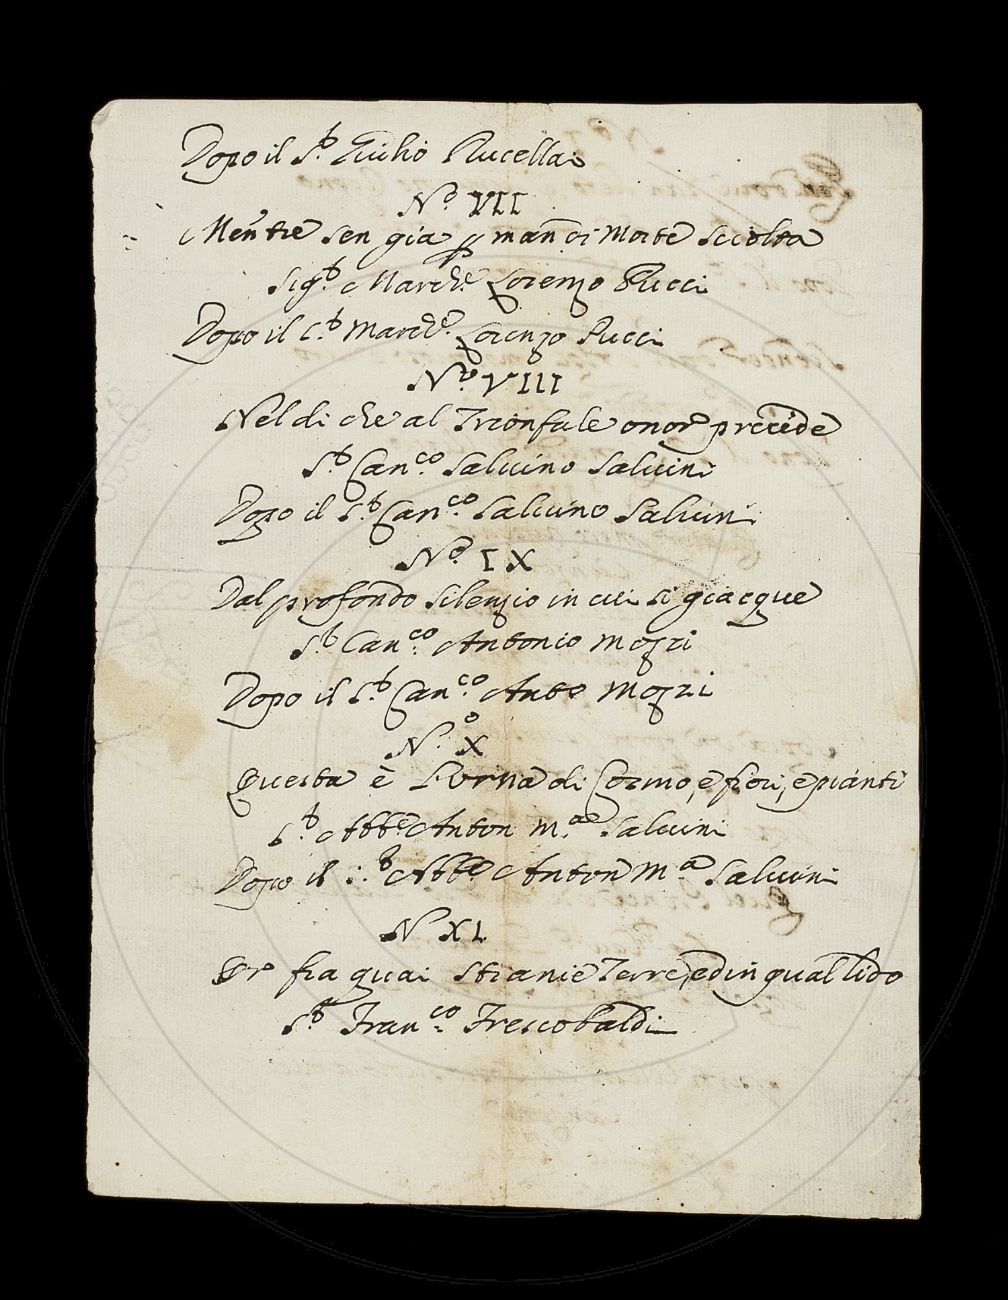 Dopo il S.r Giulio Rucellai
N.o VII
Mentre sen gia p man di Morte sciolta
Sig.r March.e Lorenzo Pucci
Dopo il S.r March.e Lorenzo Pucci
N.o VIII
Nel di che al Trionfale onor precede
S.r Can.co Salvino Salvini
Dopo il S.r Can.co Salvino Salvini
N.o IX
Dal profondo silenzio in cui si giacque
S.r Can.co Antonio Mozzi
Dopo il S.r Can.co Anto Mozzi
N.o X
Questa è l'Urna di Cosmo, e fiori, e pianti
S.r Abb.e Anton M.a Salvini
Dopo il S.r Abb.e Anton M.a Salvini
N XI
Or fra quai stranie Terre, ed in qual lido
S.r Fran.co Frescobaldi